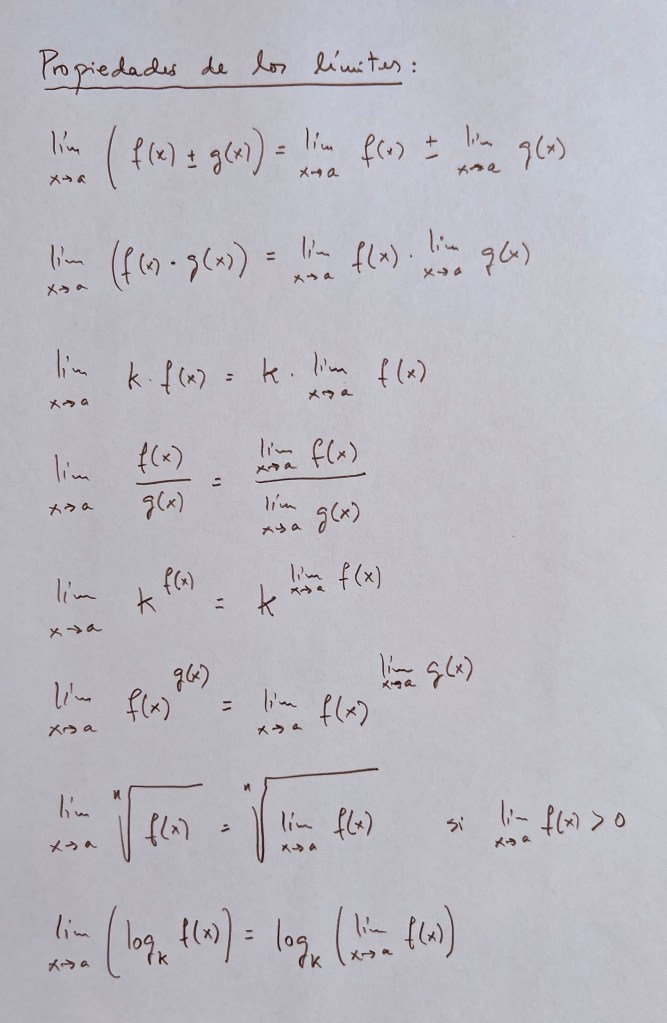 Propiedades de los límites:
lím x→a (f(x) ± g(x)) = lím x→a f(x) ± lím x→a g(x)
lím x→a (f(x) · g(x)) = lím x→a f(x) · lím x→a g(x)
lím x→a k · f(x) = k · lím x→a f(x)
lím x→a f(x)/g(x) = lím x→a f(x) / lím x→a g(x)
lím x→a k^f(x) = k^(lím x→a f(x))
lím x→a f(x)^g(x) = lím x→a f(x)^(lím x→a g(x))
lím x→a ⁿ√f(x) = ⁿ√(lím x→a f(x)) si lím x→a f(x) > 0
lím x→a (log_k f(x)) = log_k (lím x→a f(x))